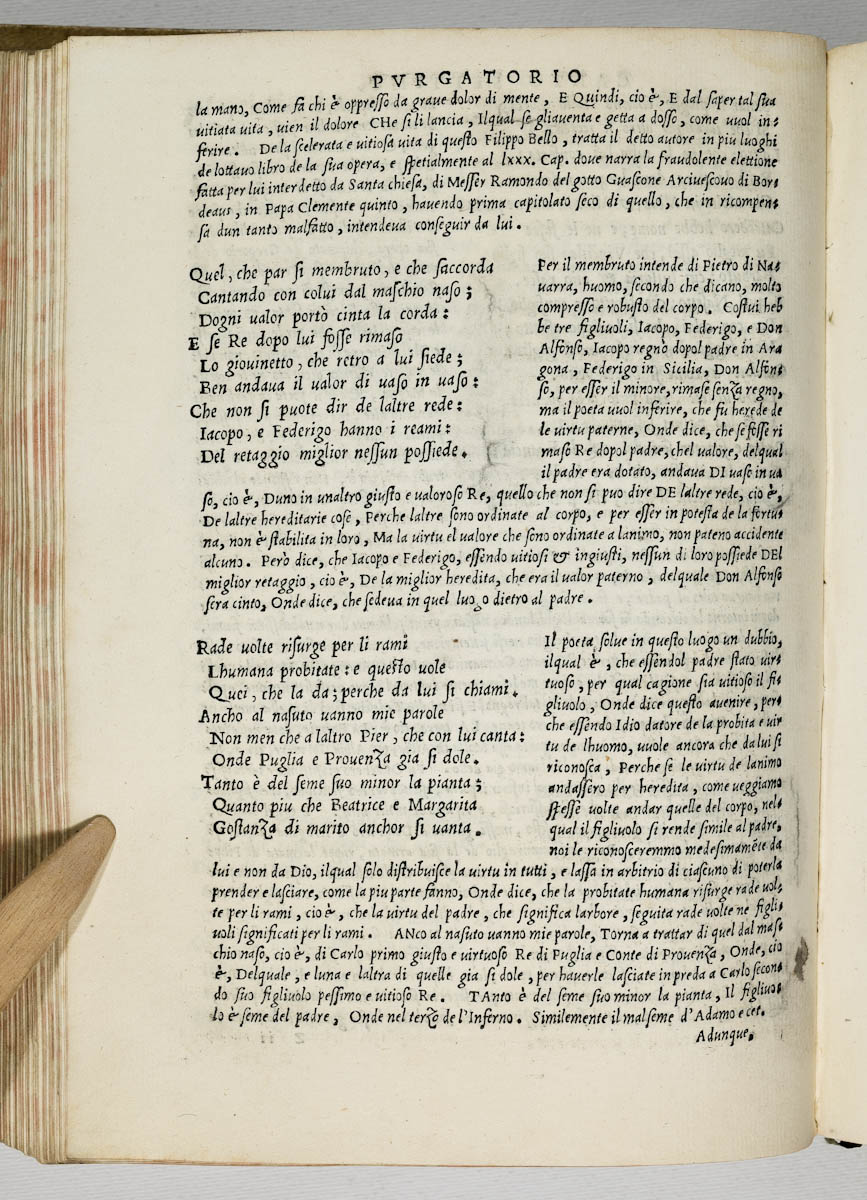 PVRGATORIO
la mano, Come fa chi è oppresso da graue dolor di mente, E Quindi, cio è, E dal saper tal sua
uitiata uita, uien il dolore CHe si li lancia, Ilqual se gliauenta e getta a dosso, come uuol in-
ferire. De la scelerata e uitiosa uita di questo Filippo Bello, tratta il detto autore in piu luoghi
de lottauo libro de la sua opera, e spetialmente al lxxx. Cap. doue narra la fraudolente elettione
fatta per lui interdetto da Santa chiesa, di Messer Ramondo del gotto Guascone Arciuescouo di Bor-
deaus, in Papa Clemente quinto, hauendo prima capitolato seco di quello, che in ricompen-
sa dun tanto malfatto, intendeua conseguir da lui.
Quel, che par si membruto, e che saccorda
Cantando con colui dal maschio naso;
Dogni ualor portò cinta la corda:
E se Re dopo lui fosse rimaso
Lo giouinetto, che retro a lui siede;
Ben andaua il ualor di uaso in uaso:
Che non si puote dir de laltre rede:
Iacopo, e Federigo hanno i reami:
Del retaggio miglior nessun possiede.
Per il membruto intende di Pietro di Na-
uarra, huomo, secondo che dicano, molto
compresso e robusto del corpo. Costui heb
be tre figliuoli, Iacopo, Federigo, e Don
Alfonso, Iacopo regnò dopol padre in Ara
gona, Federigo in Sicilia, Don Alfon-
so, per esser il minore, rimase senza regno,
ma il poeta uuol inferire, che fu herede de
le uirtu paterne, Onde dice, che se fosse ri
maso Re dopol padre, chel ualore, delqual
il padre era dotato, andaua DI uaso in ua
so, cio è, Duno in unaltro giusto e ualoroso Re, quello che non si puo dire DE laltre rede, cio è,
De laltre hereditarie cose, Perche laltre sono ordinate al corpo, e per esser in potesta de la fortu-
na, non è stabilita in loro, Ma la uirtu el ualore che sono ordinate a lanimo, non pateno accidente
alcuno. Però dice, che Iacopo e Federigo, essendo uitiosi & ingiusti, nessun di loro possiede DEl
miglior retaggio, cio è, De la miglior heredita, che era il ualor paterno, delquale Don Alfonso
sera cinto, Onde dice, che sedeua in quel luogo dietro al padre.
Rade uolte risurge per li rami
Lhumana probitate: e questo uole
Quei, che la da; perche da lui si chiami.
Ancho al nasuto uanno mie parole
Non men che a laltro Pier, che con lui canta:
Onde Puglia e Prouenza gia si dole.
Tanto è del seme suo minor la pianta;
Quanto piu che Beatrice e Margarita
Gostanza di marito anchor si uanta.
Il poeta solue in questo luogo un dubbio,
ilqual è, che essendol padre stato uir-
tuoso, per qual cagione sia uitioso il fi-
gliuolo, Onde dice questo auenire, per-
che essendo Idio datore de la probita e uir
tu de lhuomo, uuole ancora che da lui si
riconosca, Perche se le uirtu de lanimo
andassero per heredita, come ueggiamo
spesse uolte andar quelle del corpo, nel-
qual il figliuolo si rende simile al padre,
noi le riconosceremmo medesimamẽte da
lui e non da Dio, ilqual solo distribuisce la uirtu in tutti, e lassa in arbitrio di ciascuno di poterla
prender e lasciare, come la piu parte fanno, Onde dice, che la probitate humana risurge rade uol-
te per li rami, cio è, che la uirtu del padre, che significa larbore, seguita rade uolte ne figli-
uoli significati per li rami. ANco al nasuto uanno mie parole, Torna a trattar di quel dal mas-
chio naso, cio è, di Carlo primo giusto e uirtuoso Re di Puglia e Conte di Prouenza, Onde, cio
è, Delquale, e luna e laltra di quelle gia si dole, per hauerle lasciate in preda a Carlo secon-
do suo figliuolo pessimo e uitioso Re. TAnto è del seme suo minor la pianta, Il figliuo-
lo è seme del padre, Onde nel terzo de l'Inferno. Similemente il mal seme d'Adamo e cet.
Adunque,